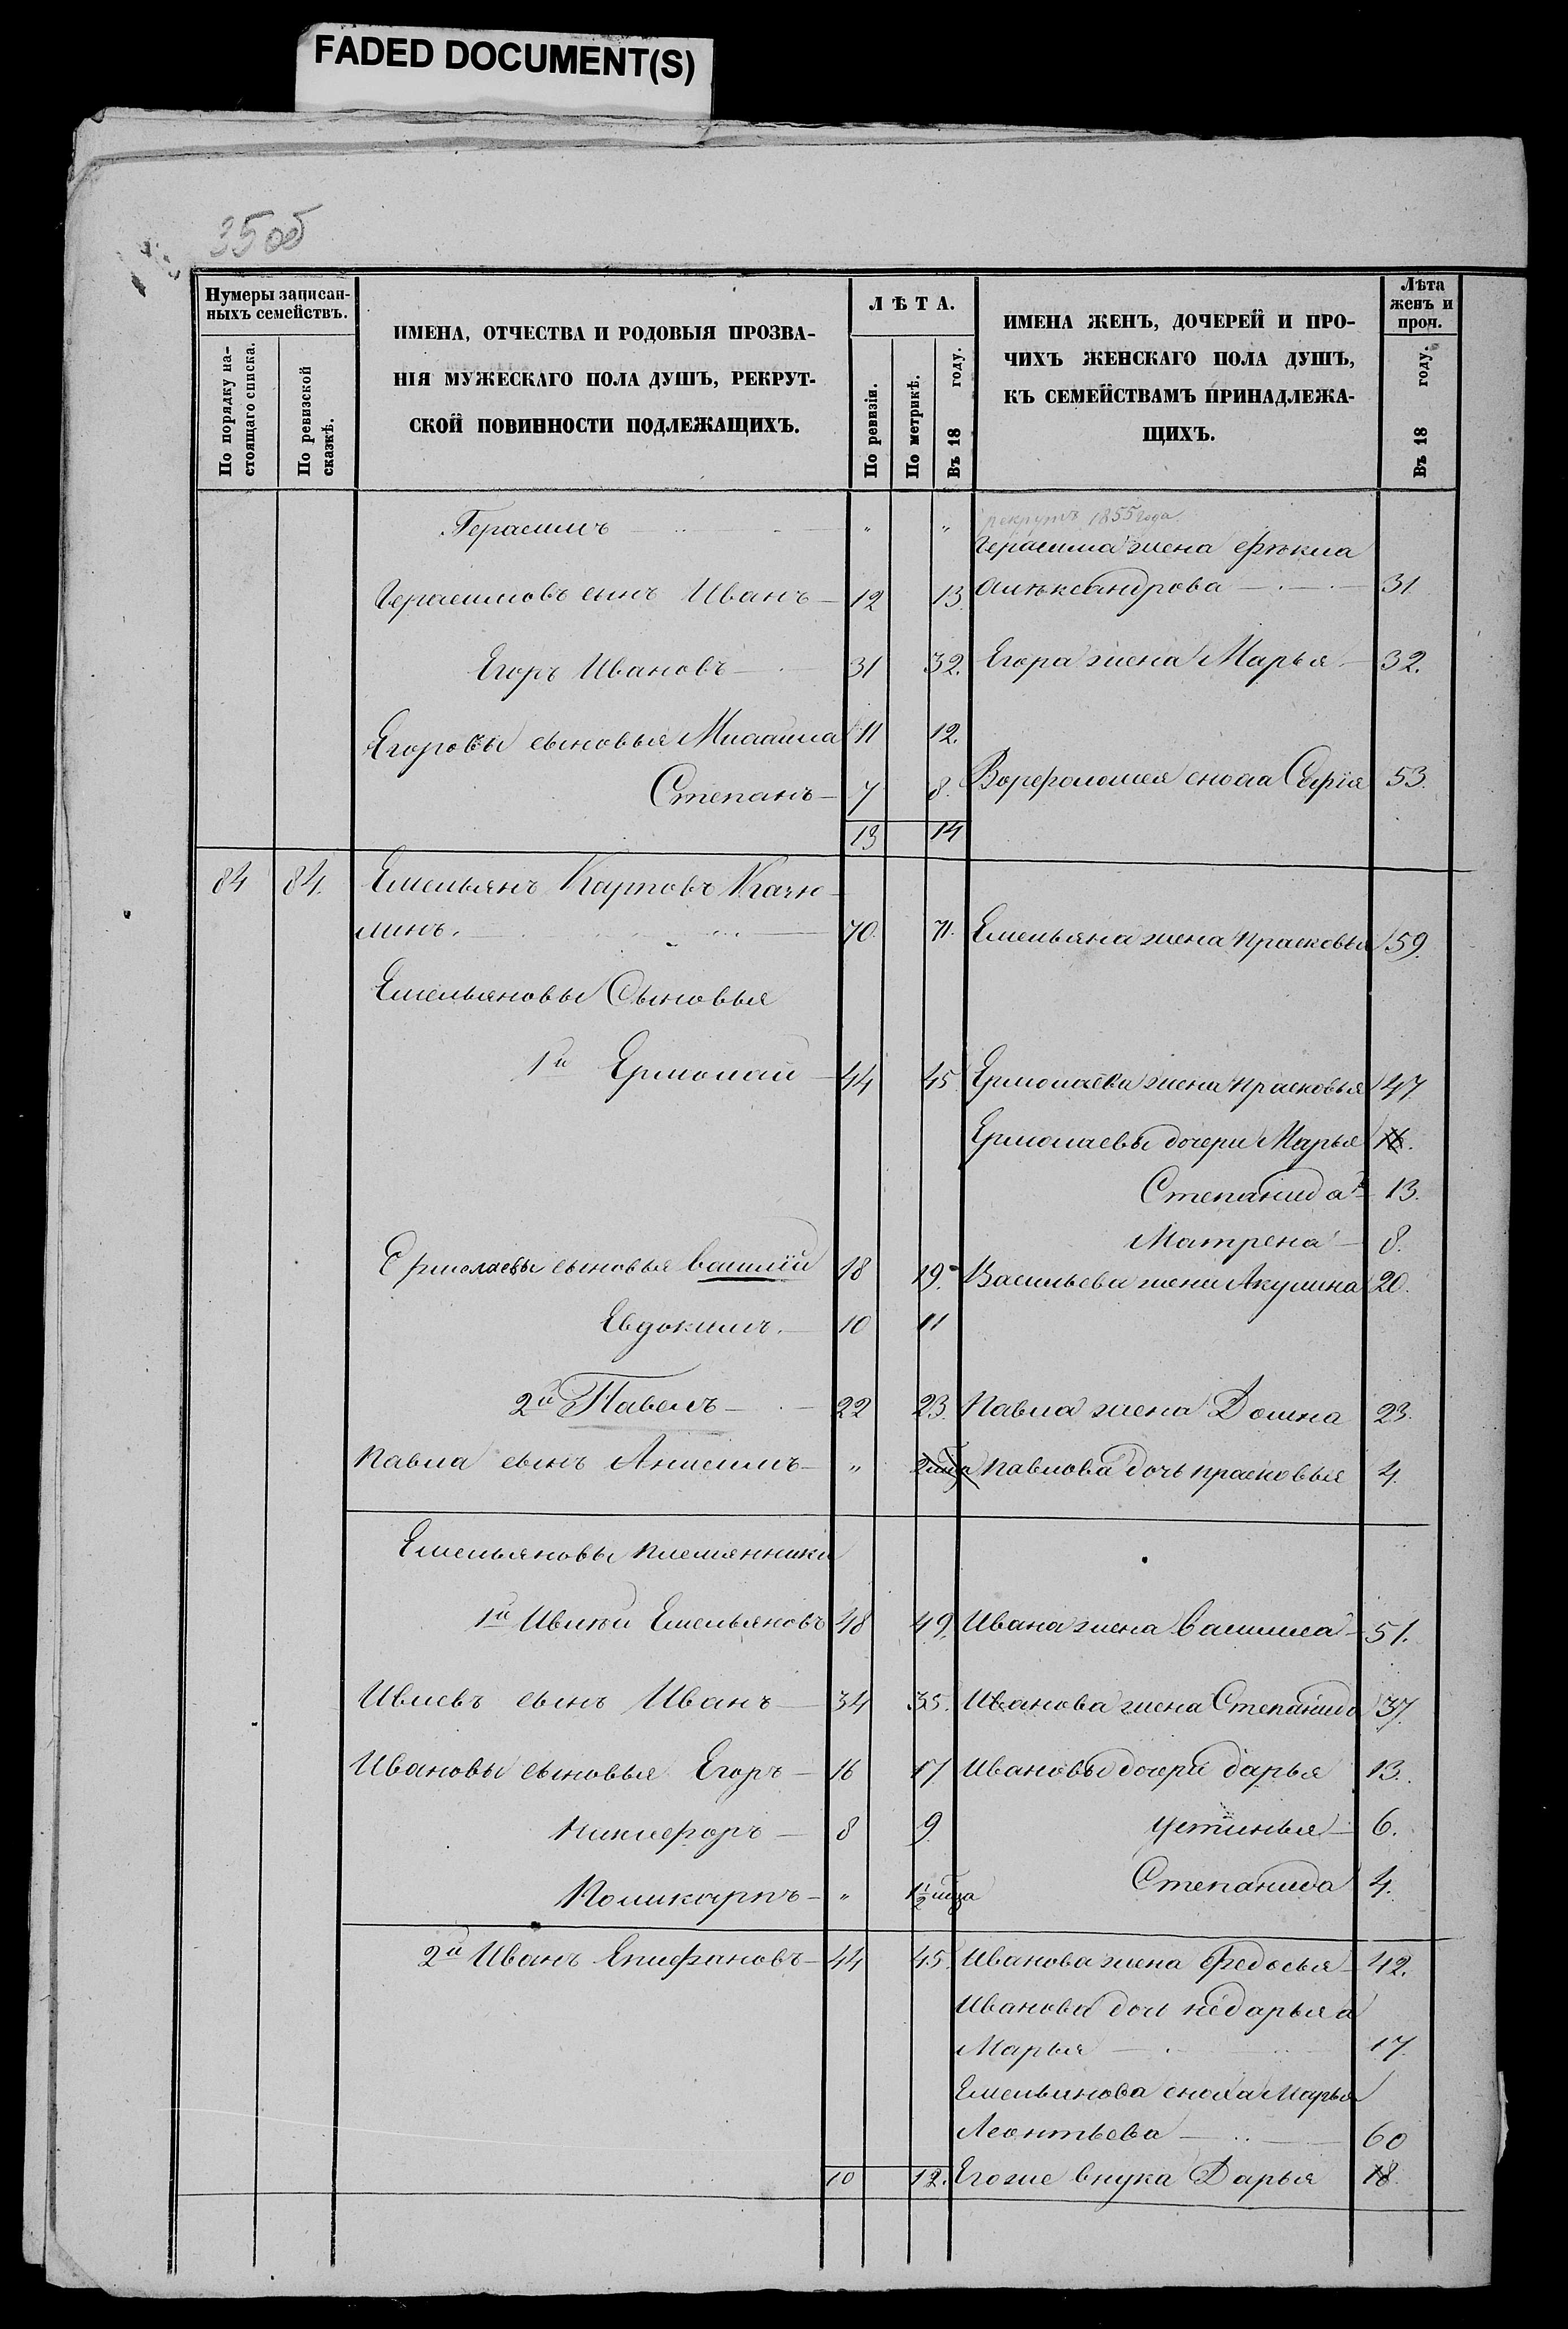 FADED DOCUMENT(S)
35об
Нумеры записан-
ныхъ семействъ.
По порядку на-
стоящаго списка.
По ревизской
сказкѣ.
ИМЕНА, ОТЧЕСТВА И РОДОВЫЯ ПРОЗВА-
НІЯ МУЖЕСКАГО ПОЛА ДУШЪ, РЕКРУТ-
СКОЙ ПОВИННОСТИ ПОДЛЕЖАЩИХЪ.
ЛѢТА.
По ревизіи.
По метрикѣ.
Въ 18 году.
ИМЕНА ЖЕНЪ, ДОЧЕРЕЙ И ПРО-
ЧИХЪ ЖЕНСКАГО ПОЛА ДУШЪ,
КЪ СЕМЕЙСТВАМЪ ПРИНАДЛЕЖА-
ЩИХЪ.
Лѣта
женъ и
проч.
Въ 18 году.
рекрутъ 1855 года.
Герасимъ " "
Герасима жена
Герасимовъ сынъ Иванъ 12 13 Александрова 31
Егоръ Ивановъ 31 32. Егора жена Марья 32.
Егоровы сыновья Михаила 11 12.
Степанъ 7 8. сноха Софія 53.
13 14
84 84. Емельянъ Карповъ
линъ. 70. 71. Емельяна жена Прасковья 59.
Емельяновы Сыновья
1й Ермолай 44 45 Ермолаева жена Прасковья 47
Ермолаевы дочери Марья 16.
Степанида 13.
Матрена 8.
Ермолаевы сыновья Василій 18 19. Васильева жена Акулина 20.
Евдокимъ. 10 11
2й Павелъ 22 23. Павла жена Домна 23.
Павла сынъ Анисимъ " Павлова дочь Прасковья 4
Емельяновы племянники
1й Ивлій Емельяновъ 48 49. Ивана жена Василиса 51.
Ивлевъ сынъ Иванъ 34 35. Иванова жена Степанида 37.
Ивановы сыновья Егоръ 16 17 Ивановы дочери Дарья 13.
Никифоръ 8 9 Устинья 6.
Поликарпъ " 1½ мца Степанида 4.
2й Иванъ Епифановъ 44 45. Иванова жена Федосья 42.
Иванова дочь не Дарья а
Марья 17.
Емельянова сноха Марья
Леонтьева 60
10 12. Его же внука Дарья 18.